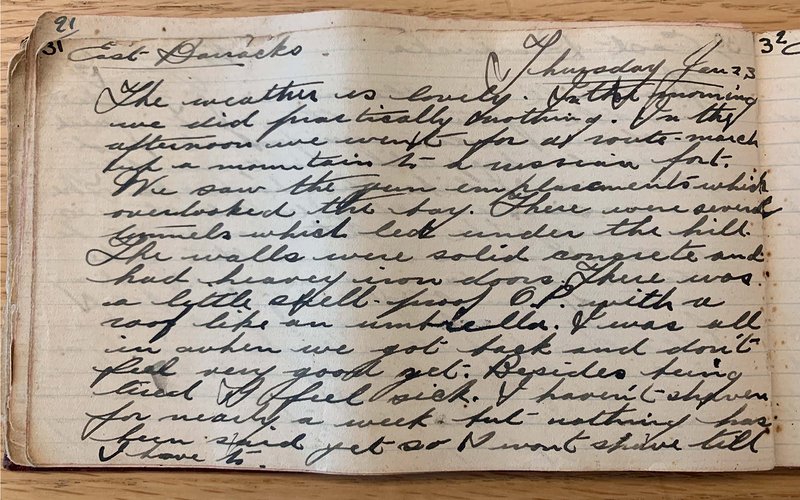 21
31
East Barracks.
Thursday Jan 23
The weather is lovely. In the morning
we did practically nothing. In the
afternoon we went for a route-march
up a mountain to a russian fort.
We saw the gun emplacements which
overlooked the bay. There were several
tunnels which led under the hill.
The walls were solid concrete and
had heavy iron doors. There was
a little shell-proof O.P. with a
roof like an umbrella. I was all
in when we got back and don't
feel very good yet. Besides being
tired I feel sick. I haven't shaven
for nearly a week but nothing has
been said yet so I wont shave till
I have to.
32